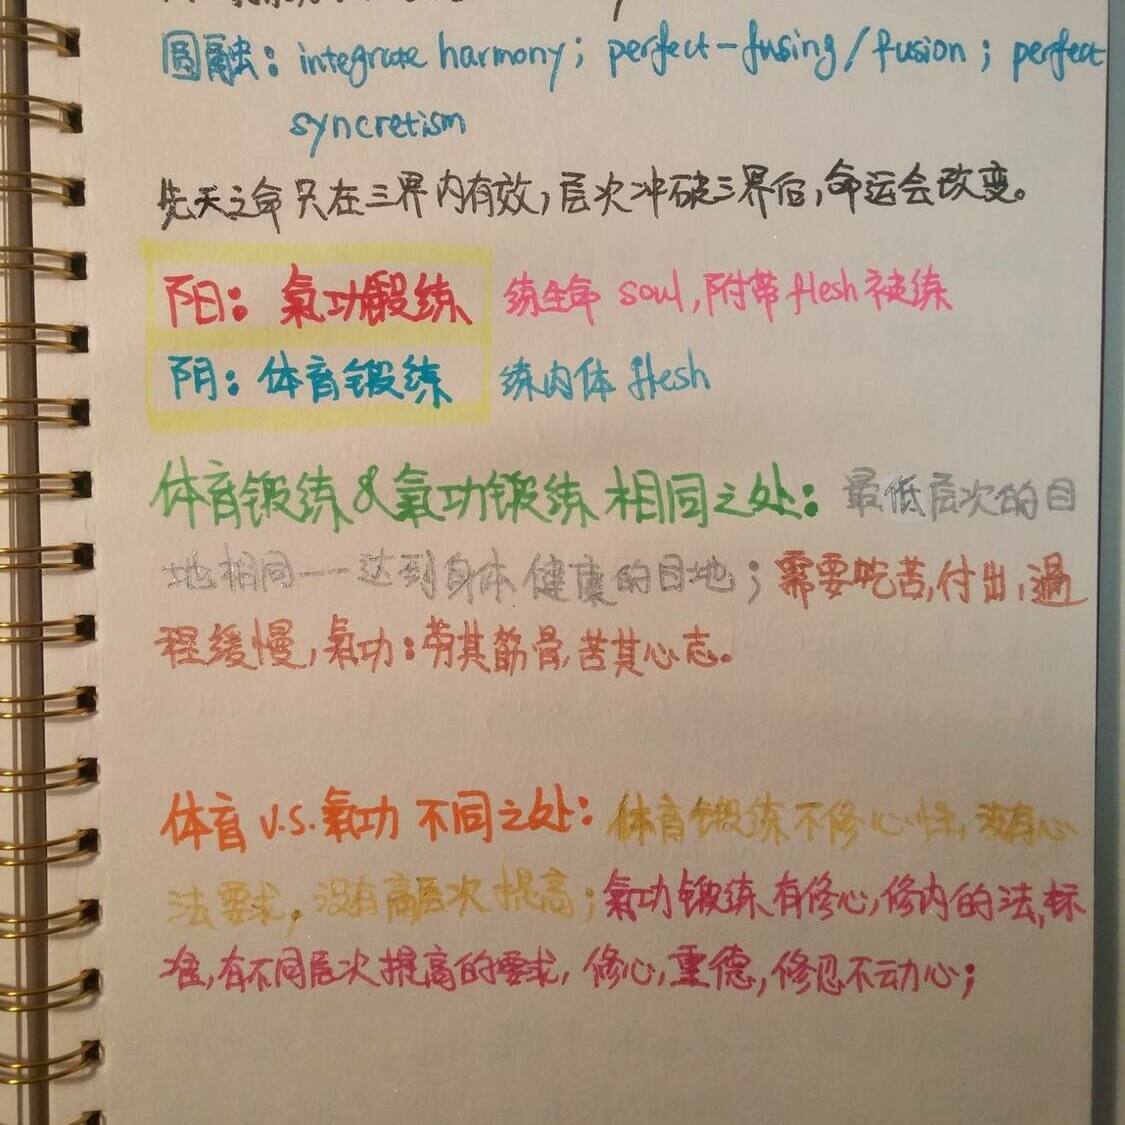 圆融: integrate harmony; perfect-fusing/fusion; perfect
syncretism
先天之命只在三界内有效,层次冲破三界后,命运会改变。
阳: 氣功鍛练 练生命 soul, 附带 flesh 被练
阴: 体育锻练 练肉体 flesh
体育锻练 & 氣功锻练 相同之处: 最低层次的目
地相同——达到身体健康的目地; 需要吃苦,付出,過
程缓慢, 氣功: 劳其筋骨,苦其心志。
体育 V.S. 氣功 不同之处: 体育锻练不修心性, 没有心
法要求, 没有高层次提高; 氣功锻练有修心,修内的法,标
准,有不同层次提高的要求, 修心,重德,修忍不动心;